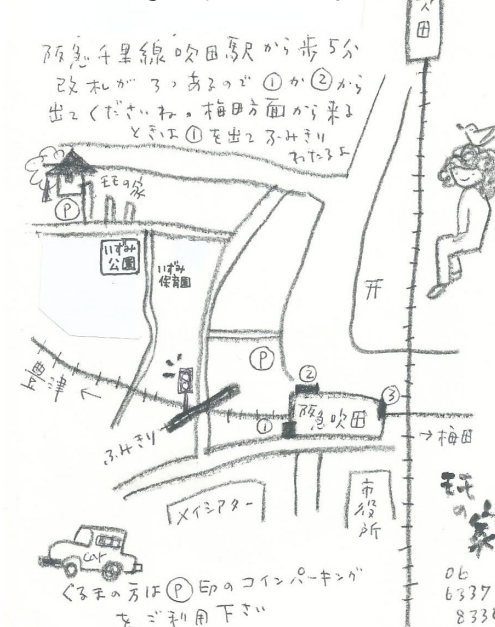 吹田
阪急千里線吹田駅から歩5分
改札が3つあるので①か②から
出てくださいね。梅田方面から来る
ときは①を出てふみきり
わたるよ
モモの家
P
いずみ
公園
いずみ
保育園
P
豊津
←
②
③
阪急吹田
①
→梅田
ふみきり
メイシアター
市役所
モモの家
06
6337
833
car
くるまの方はⓅ印のコインパーキング
をご利用下さい